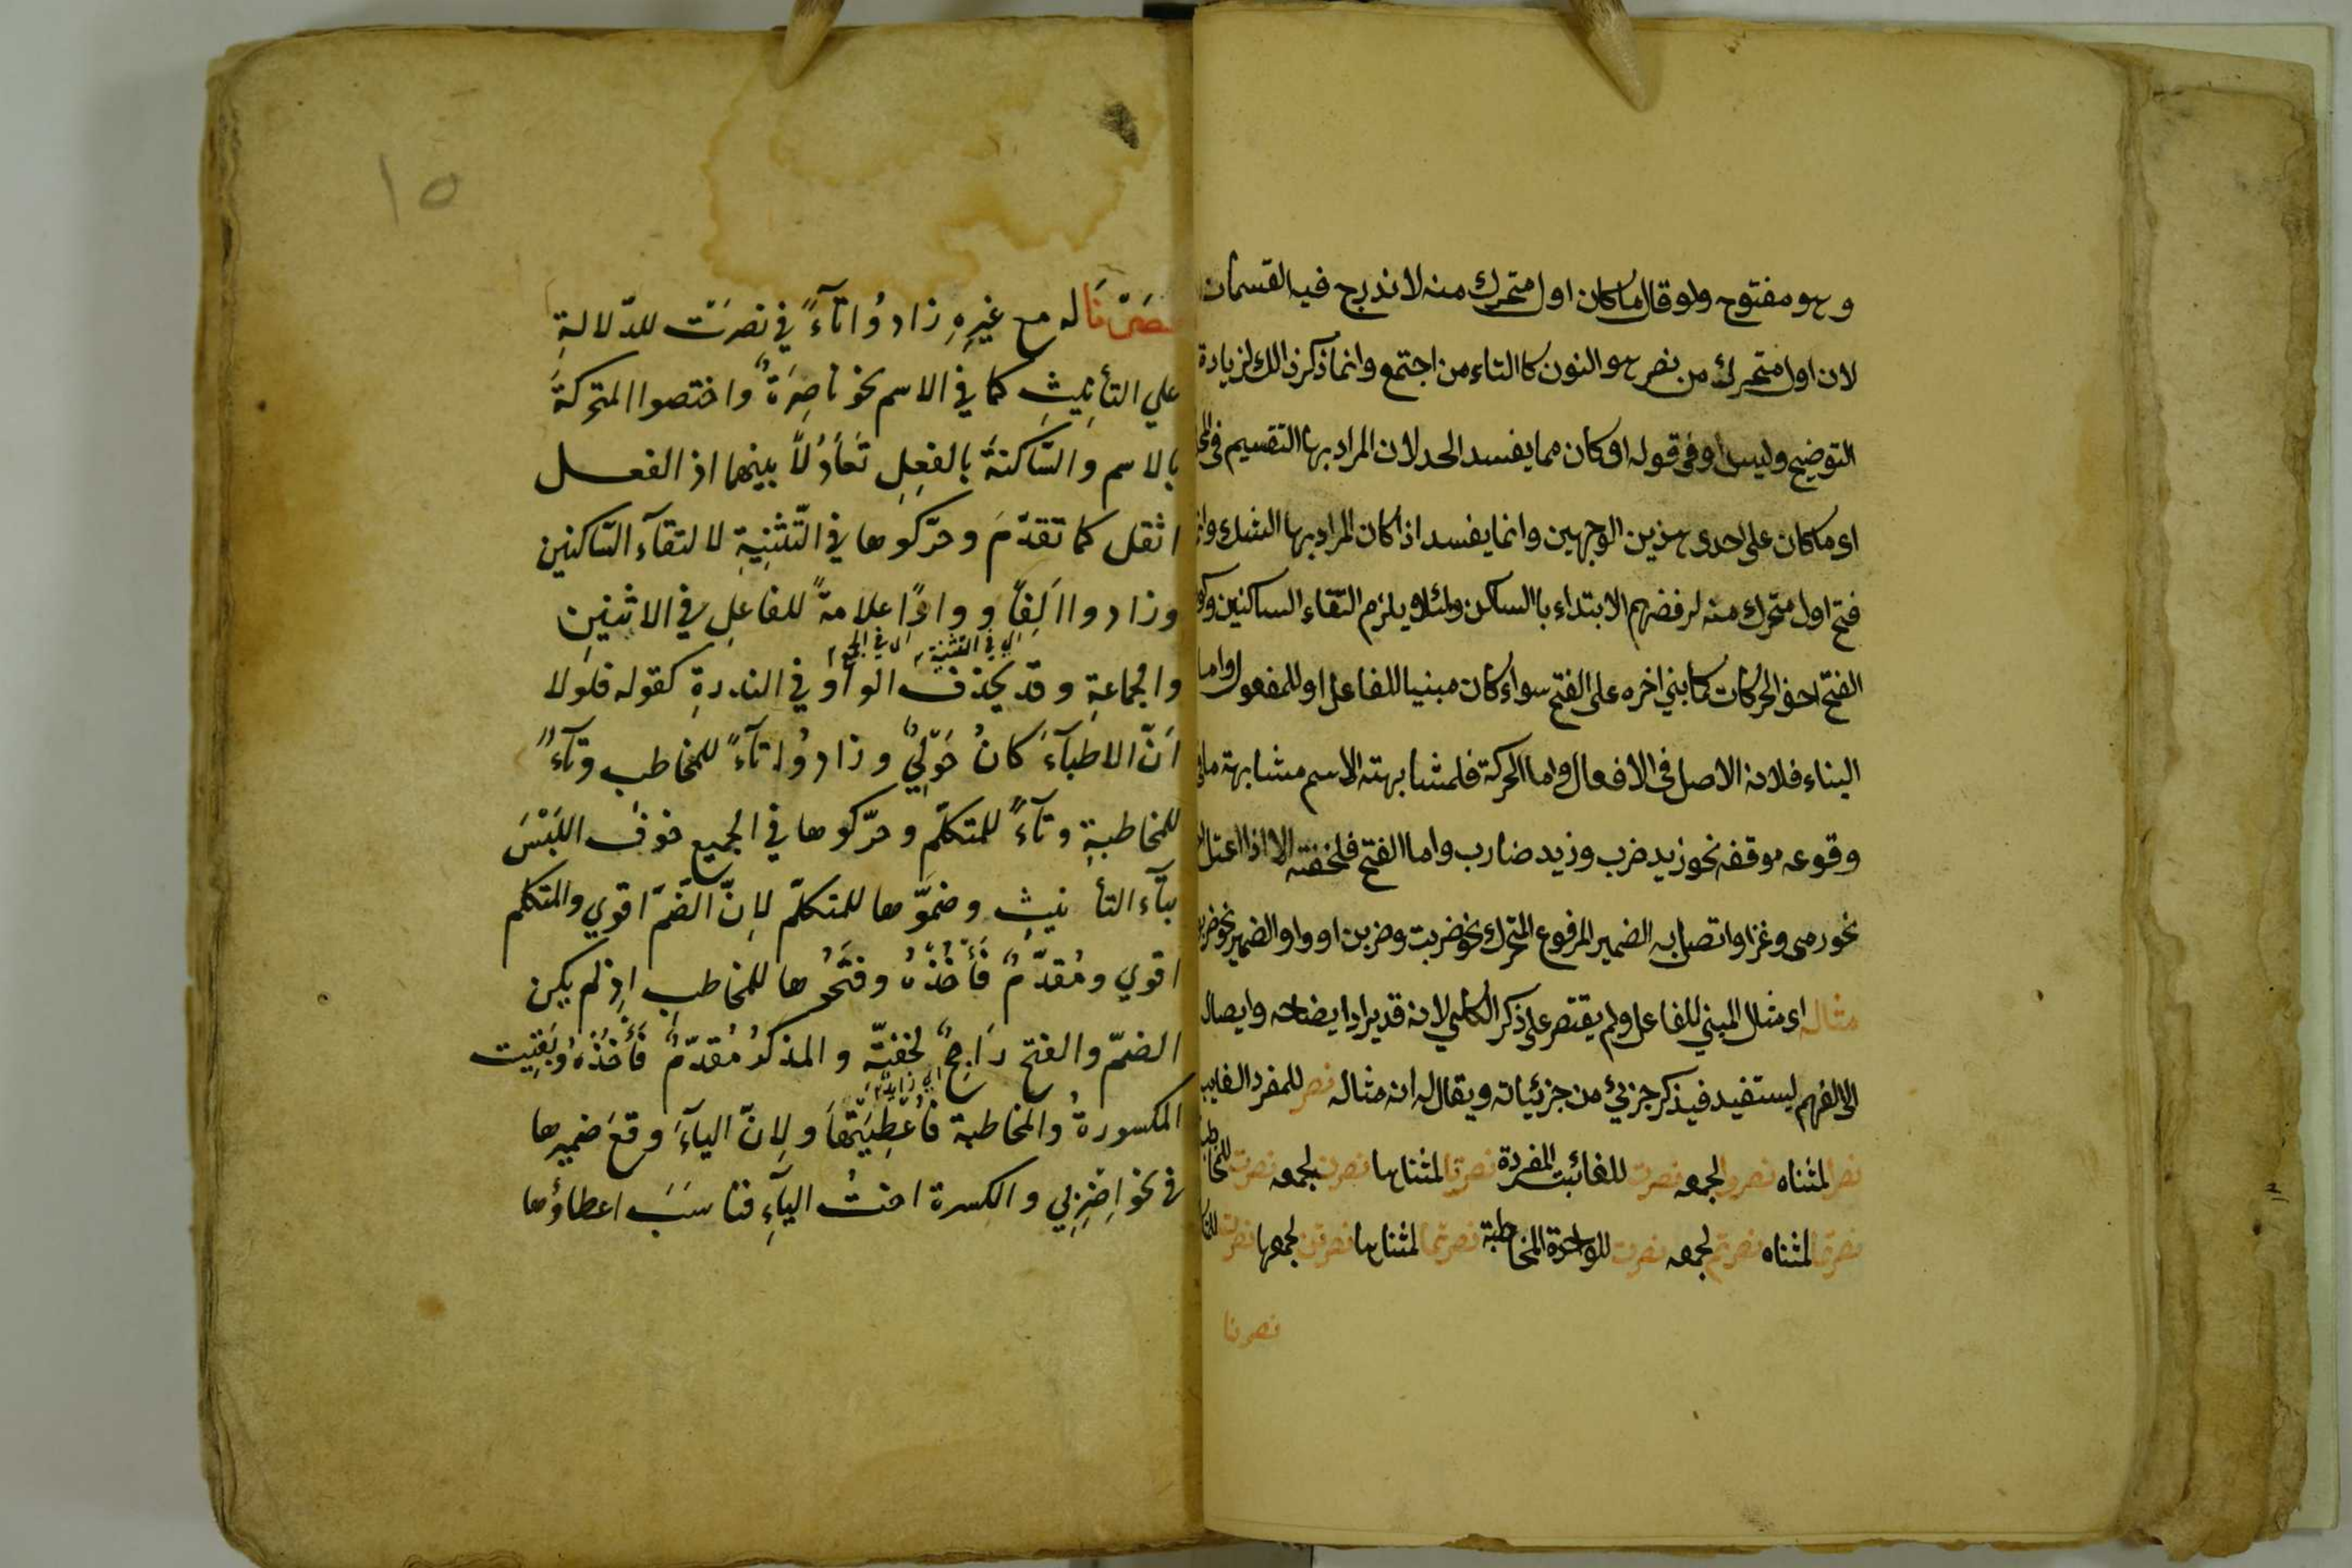 وهو مفتوح ولو قال ما كان اول متحرك منه لاندرج فيه القسمان
لان اول متحرك من نصر هو النون كالتاء من اجتمع وانما ذكر ذالك لزيادة
التوضيح وليس او فى قوله او كان مما يفسد الحد لان المراد بها التقسيم فى
اى ما كان على احدى هذين الوجهين وانما يفسد اذا كان المراد بها الشك
فتح اول متحرك منه لرفضهم الابتداء با الساكن ولئلا يلزم التقاء الساكنين
الفتح اخف الحركات كما بني اخره على الفتح سواء كان مبنيا للفاعل او للمفعول واما
البناء فلانه الاصل فى الافعال واما الحركة فلمشابهته الاسم مشابهة ما
وقوعه موقفه نحو زيد ضرب وزيد ضارب واما الفتح فلخفته الا اذا اعتل
نحو رمى وغزا واتصل به الضمير المرفوع المتحرك نحو ضربت وضربن او واو الضمير نحو
مثاله اى مثال المبني للفاعل ولم يقتصر على ذكر الكلي لانه قد يراد ايضاحه وايصاله
الى الفهم ليستفيد فيذكر جزئي من جزئياته ويقال له انه مثاله نصر للمفرد الغايب
نصرا لمثناه نصروا لجمعه نصرت للغائبة المفردة نصرتا لمثناها نصرن لجمعه نصرت للمخاطب
نصرتما لمثناه نصرتم لجمعه نصرت للواحدة المخاطبة نصرتما لمثناها نصرتن لجمعها نصرت
نصرنا
١٥
نصَرْنَا له مع غيرِهِ زادوُا تآءً في نصرَتْ للدّلالةِ
علي التأنيثِ كما في الاسم نحو ناصِرَةٌ واختصوا المتحركةَ
بالاسم والسّاكنةَ بالفعِلِ تَعَادُلاً بينهما اذ الفعل
اثقل كما تقدّمَ وحرّكوها في التّثنِيةِ لالتقآء السّاكنين
وزادوا اَلِفاً و واوًا علامةً للفاعلِ في الاثنينِ
اي في التثنية اي في الجمع
والجماعةِ وقد يحذف الواو في الندرةِ كقوله فلولا
اَنّ الاطبآءَ كانُ حَوْلِيْ وزادوُا تآءً للمخاطب وتآءً
للمخاطبةِ وتآءً للمتكلّم وحرّكوها في الجميع خوفَ اللَبْسَ
بتآء التأنيثِ وضمّوها للمتكلّم لِانّ الضّمّ اقوي والمتكلم
اقوي ومُقدّمٌ فَأَخَذُهُ وفتَحُوها للمخاطبِ اِذ لم يكن
الضمّ والفتح رَاجحٌ لخفتّه والمذكرُ مُقدّمٌ فَأَخَذُهُ وبَقِيت
المكسورةُ والمخاطبة فأُعْطِيَتهَا ولِانّ اليآءَ وقعَ ضميرها
في نحو اِضْرِبي والكسرة اختُ اليآءِ فناسَبَ اعطاؤُها